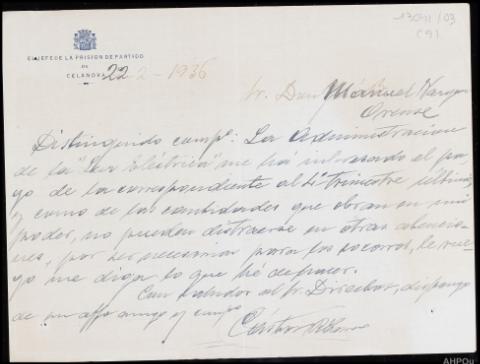 13041/03
(9)
EL JEFE DE LA PRISIÓN DE PARTIDO
DE
CELANOVA
22-2-1936
Sr. Don Manuel
Orense
Distinguido compº: La Administracion
de la "Eléctrica" me ha interesado el pa-
go de la correspondiente al 4º trimestre último,
y como de las cantidades que obran en mi
poder, no pueden distraerse en otras atencio-
nes, por ser necesarias para los socorros, le rue-
go me diga lo que he de hacer.
Con saludos al Sr. Director, disponga
de su affo amigo y compº
AHPOu